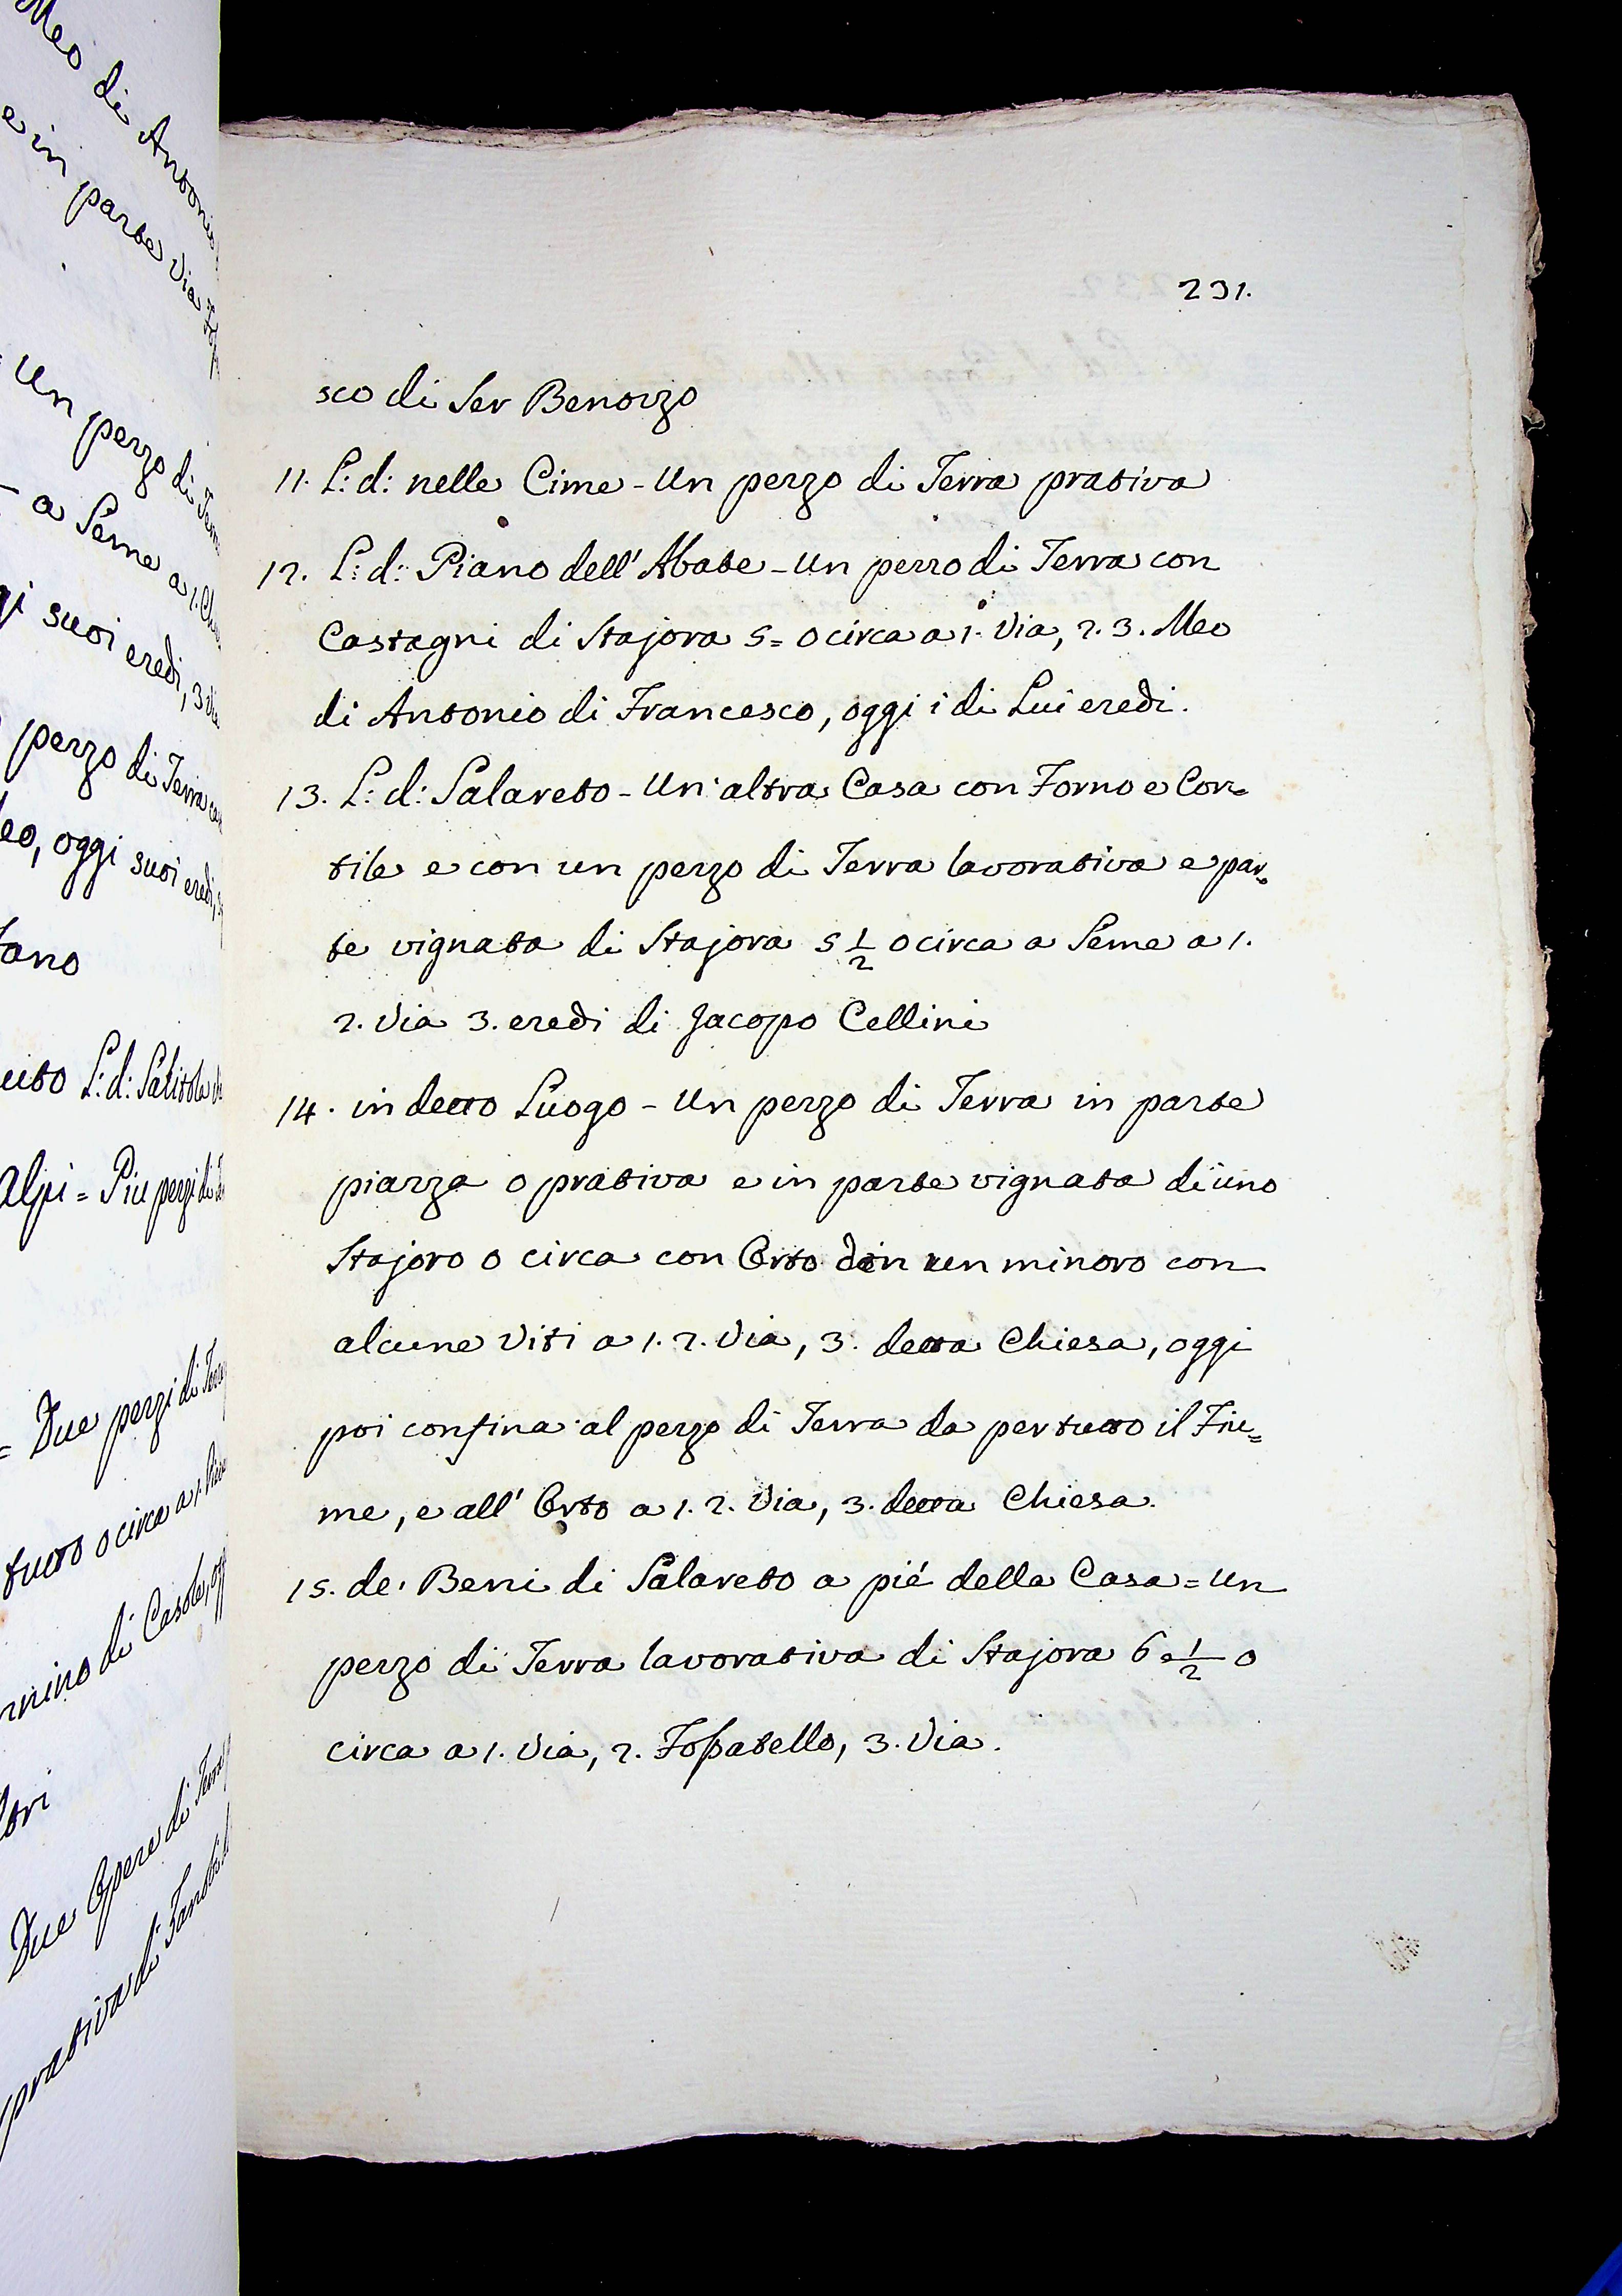 231.
sco di Ser Benozzo
11. L: d: nelle Cime - Un pezzo di Terra prativa
12. L: d: Piano dell' Abate - Un pezzo di Terra con
Castagni di Stajora 5 = o circa a 1. Via, 2. 3. Meo
di Antonio di Francesco, oggi i di Lui eredi.
13. L: d: Salareto - Un' altra Casa con Forno e Cor=
tile e con un pezzo di Terra lavorativa e par=
te vignata di Stajora 5 1/2 o circa a Seme a 1.
2. Via 3. eredi di Jacopo Cellini
14. in detto Luogo - Un pezzo di Terra in parte
piazza o prativa e in parte vignata di uno
Stajoro o circa con Orto un minoro con
alcune Viti a 1. 2. Via, 3. detta Chiesa, oggi
poi confina al pezzo di Terra da per tutto il Fiu=
me, e all' Orto a 1. 2. Via, 3. detta Chiesa.
15. de' Beni di Salareto a pié della Casa = Un
pezzo di Terra lavorativa di Stajora 6 e 1/2 o
circa a 1. Via, 2. Fossatello, 3. Via.
Meo di Antonio
e in parte Via
Un pezzo di
a Seme a 1.
suoi eredi, 3
pezzo di Terra
oggi suoi eredi,
L: d:
Alpi = Piu pezzi di
= Due pezzi di
tutto o circa a 1.
di
Due Opere di
prativa di